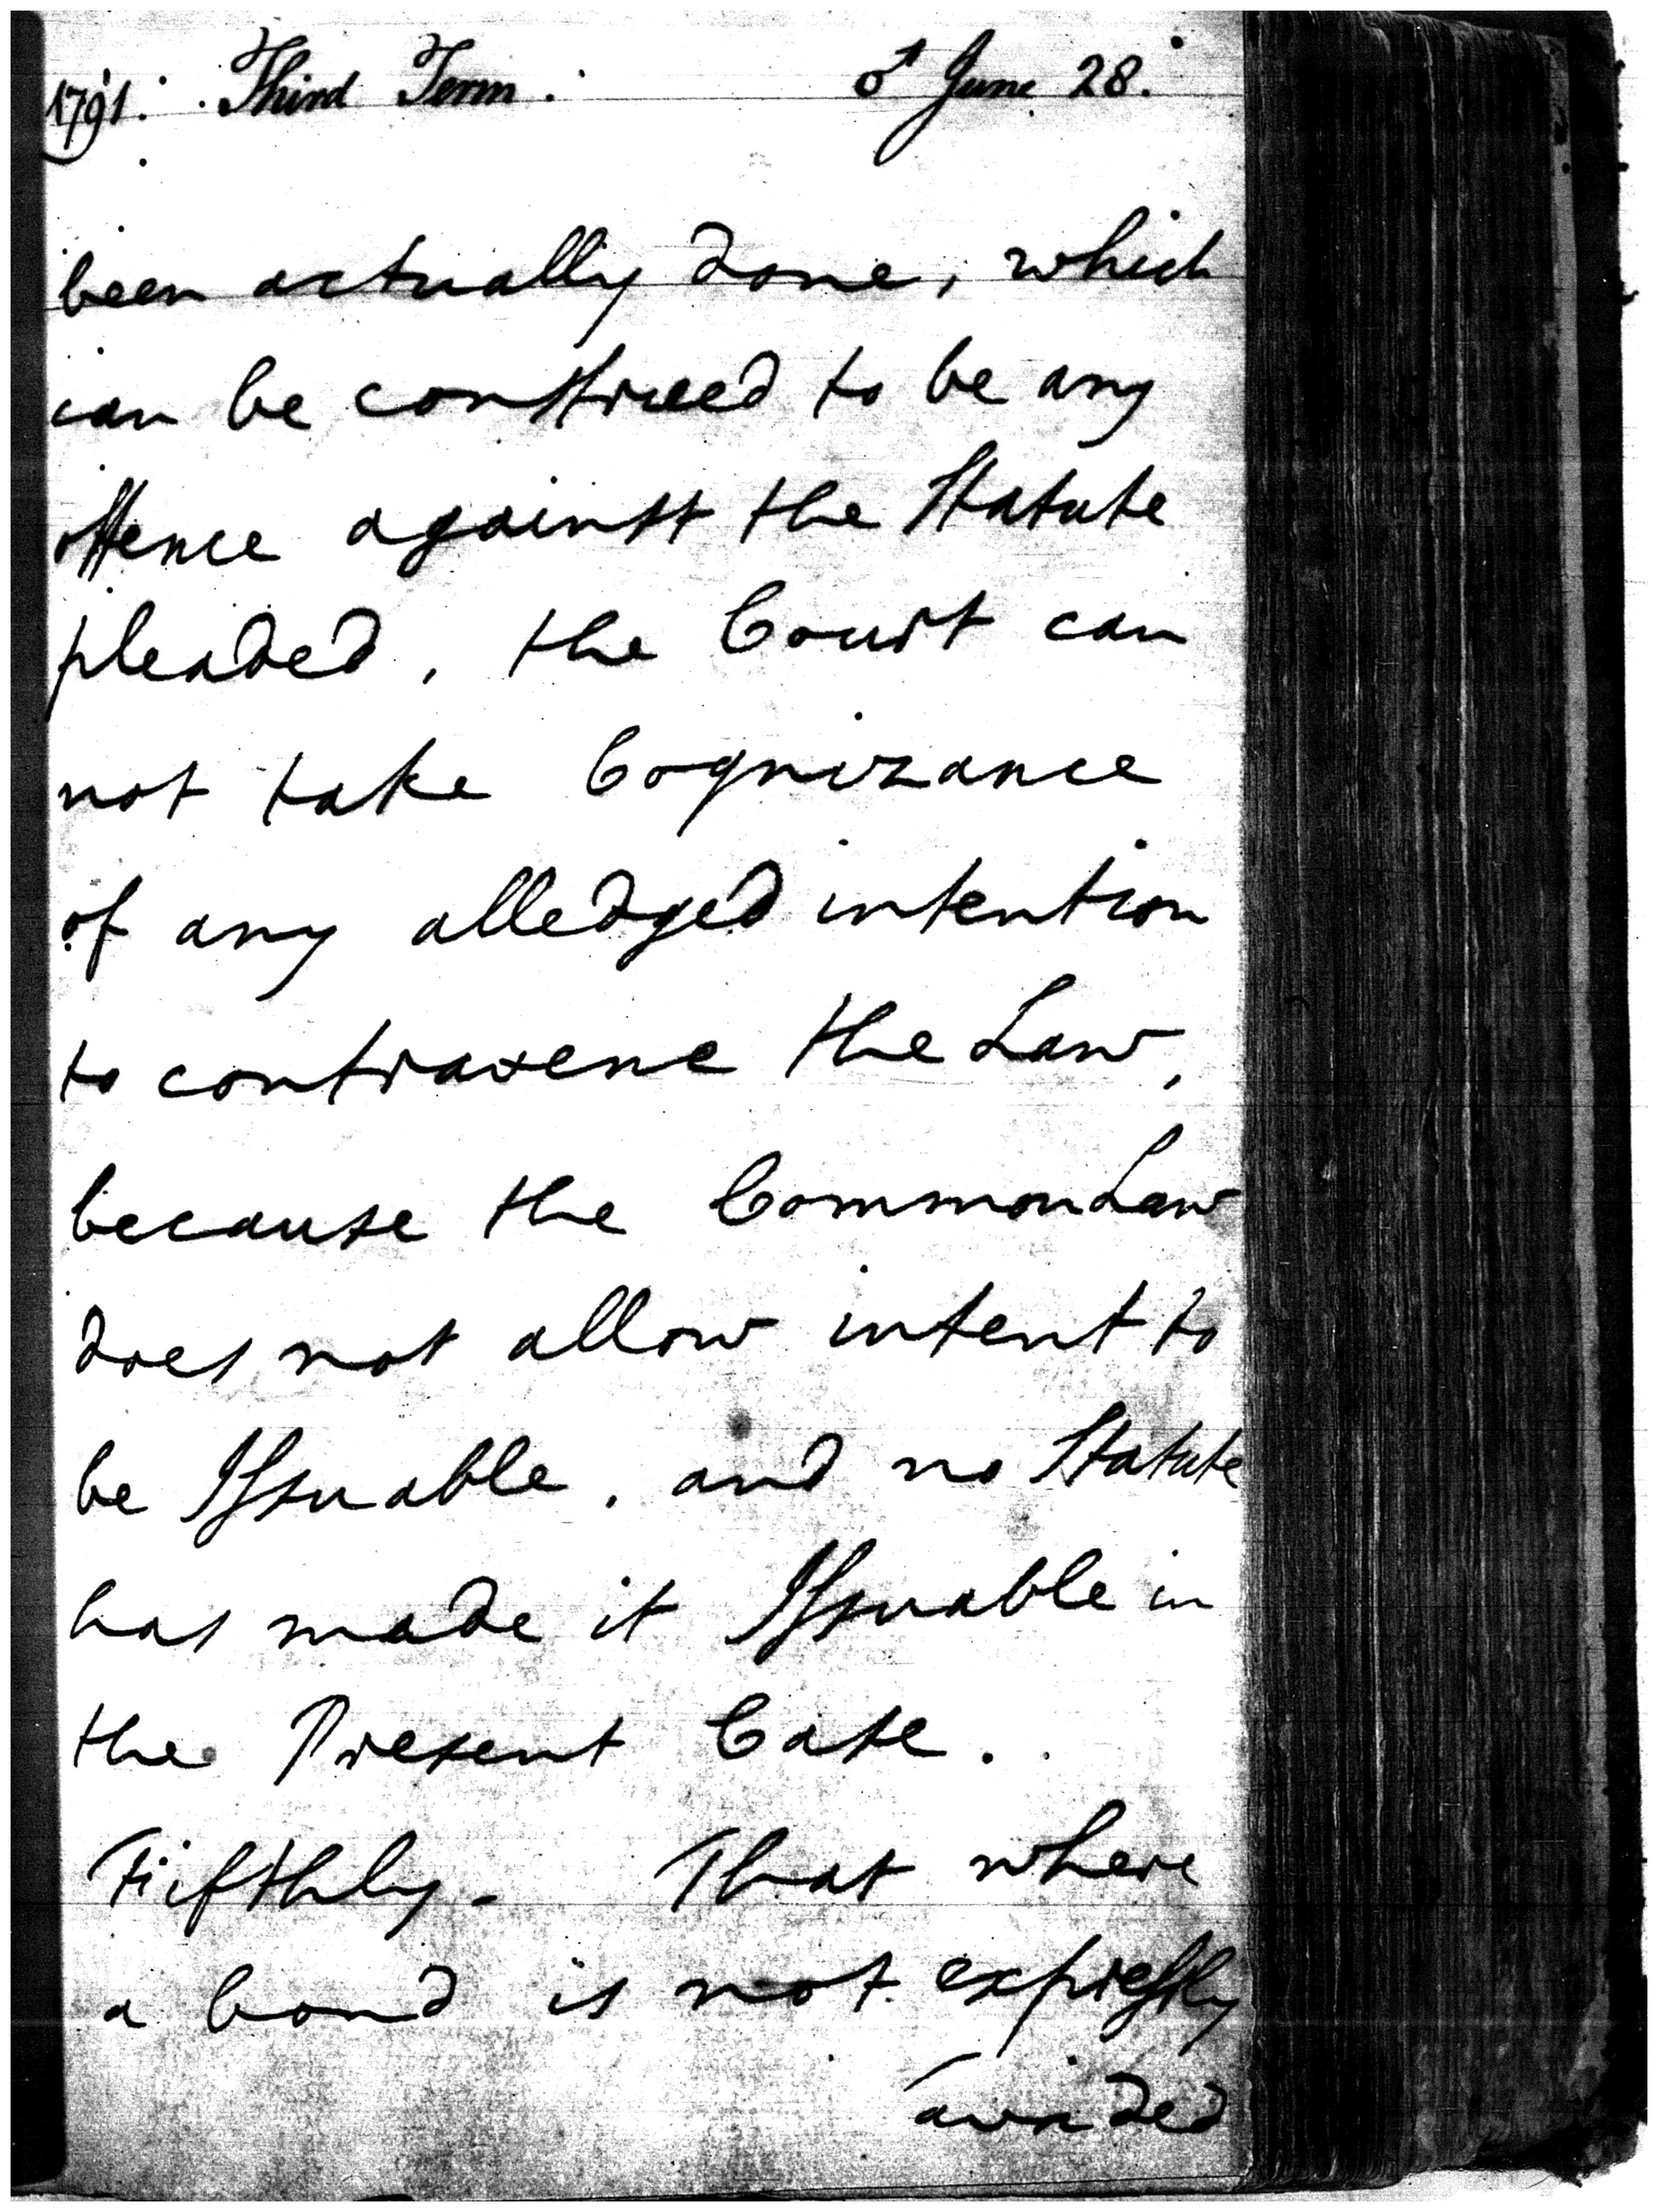 1791. Third Term. ♂ June 28.
been actually done, which
can be construed to be any
offence against the Statute
pleaded, the Court can
not take Cognizance
of any alledged intention
to contravene the Law,
because the Common Law
does not allow intent to
be Issuable, and no Statute
has made it Issuable in
the Present Case.
Fifthly. That where
a bond is not expressly
avoided